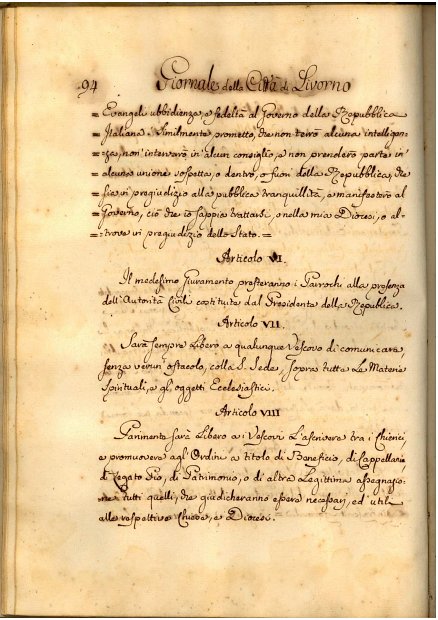 94 Giornale della Città di Livorno
= Evangeli ubbidienza, e fedeltà al Governo della Repubblica
= Italiana. Similmente prometto, che non terrò alcuna intelligen-
= za, non interverrò in alcun consiglio, e non prenderò parte in
= alcuna unione sospetta, o dentro, o fuori della Repubblica, che
= sia in pregiudizio alla pubblica tranquillità, e manifesterò al
= Governo, ciò che io sappia trattarsi, o nella mia Diocesi, o al-
= trove in pregiudizio dello Stato. =
Articolo VI.
Il medesimo Giuramento presteranno i Parrochi alla presenza
dell'Autorità Civili costituite dal Presidente della Repubblica.
Articolo VII.
Sarà sempre Libero a qualunque Vescovo di comunicare
senza verun' ostacolo, colla S. Sede, sopra tutte Le Materie
Spirituali, e gl'oggetti Ecclesiastici.
Articolo VIII
Parimente sarà Libero a i Vescovi L'ascrivere tra i Chierici,
e promuovere agl'Ordini a titolo di Beneficio, di Cappellania
di Legato Pio, di Patrimonio, o di altra Legittima assegnazio-
ne tutti quelli, che giudicheranno essere necessarj, ed utili
alle respettive Chiese, e Diocesi.